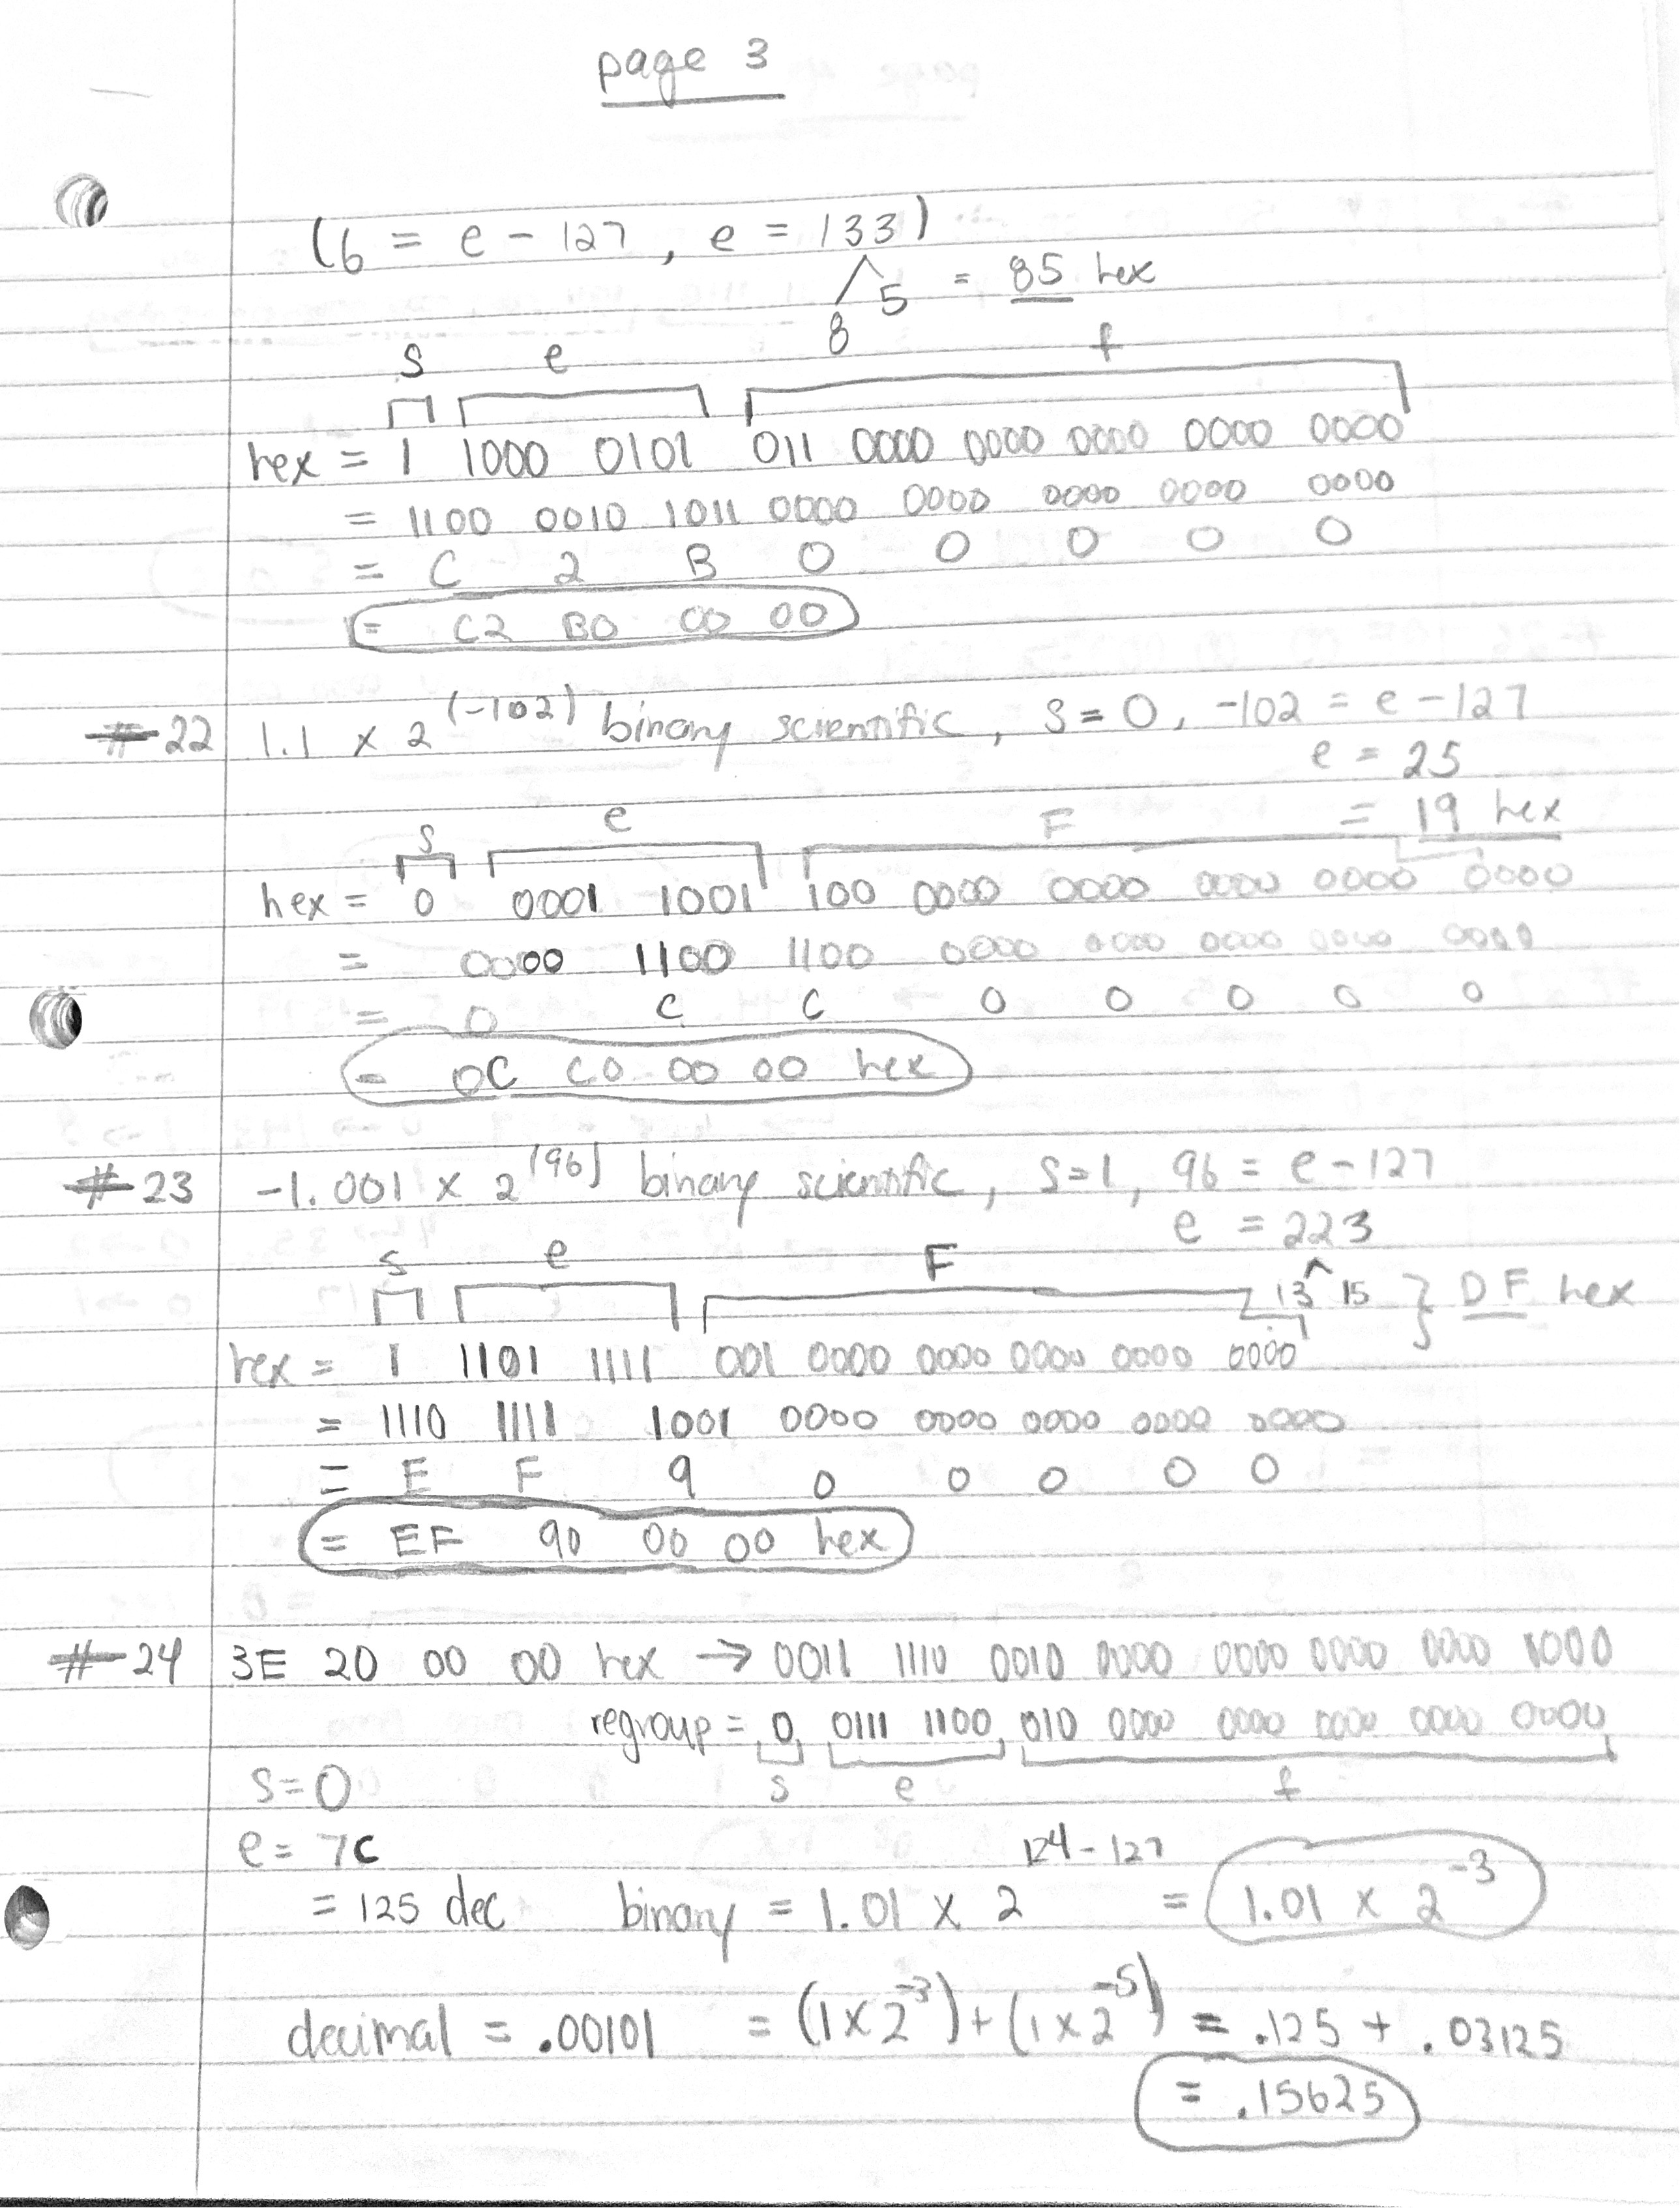 page 3
(6 = e - 127, e = 133)
8 5 = 85 hex
s e f
hex = 1 1000 0101 011 0000 0000 0000 0000 0000
= 1100 0010 1011 0000 0000 0000 0000 0000
= C 2 B 0 0 0 0 0
= C2 B0 00 00
#22 1.1 x 2^(-102) binary scientific, s = 0, -102 = e - 127
e = 25
s e F = 19 hex
hex = 0 0001 1001 100 0000 0000 0000 0000 0000
= 0000 1100 1100 0000 0000 0000 0000 0000
= 0 C C 0 0 0 0 0
= 0C C0 00 00 hex
#23 -1.001 x 2^(96) binary scientific, s=1, 96 = e - 127
e = 223
s e F 13 15 } DF hex
hex = 1 1101 1111 001 0000 0000 0000 0000 0000
= 1110 1111 1001 0000 0000 0000 0000 0000
= E F 9 0 0 0 0 0
= EF 90 00 00 hex
#24 3E 20 00 00 hex → 0011 1110 0010 0000 0000 0000 0000 1000
regroup = 0 0111 1100 010 0000 0000 0000 0000 0000
s=0 s e f
e = 7C
= 125 dec binary = 1.01 x 2^124-127 = 1.01 x 2^-3
decimal = .00101 = (1x2^-3)+(1x2^-5) = .125 + .03125
= .15625